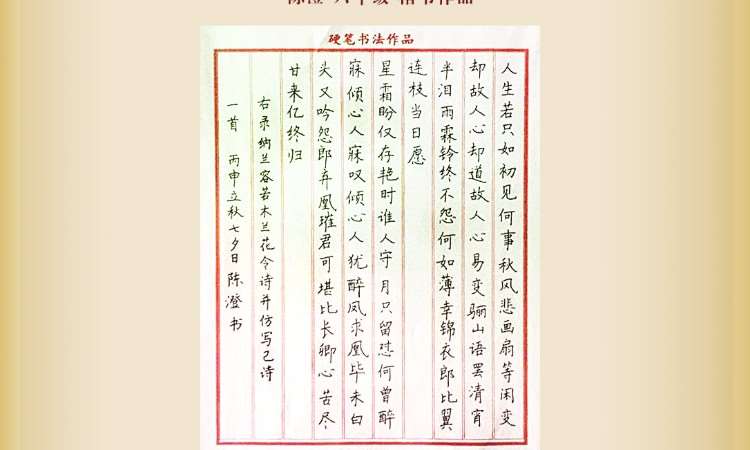 陈澄 年级 楷书作品
硬笔书法作品
人生若只如初见何事秋风悲画扇等闲变
却故人心却道故人心易变骊山语罢清宵
半泪雨霖铃终不怨何如薄幸锦衣郎比翼
连枝当日愿
星霜盼仅存艳时谁人守月只留怼何曾醉
寐倾心人寐叹倾心人犹醉凤求凰毕未白
头又吟怨郎弃凰璀君可堪比长卿心苦尽
甘来亿终归
右录纳兰容若木兰花令诗并仿写己诗
一首 丙申立秋七夕日陈澄书